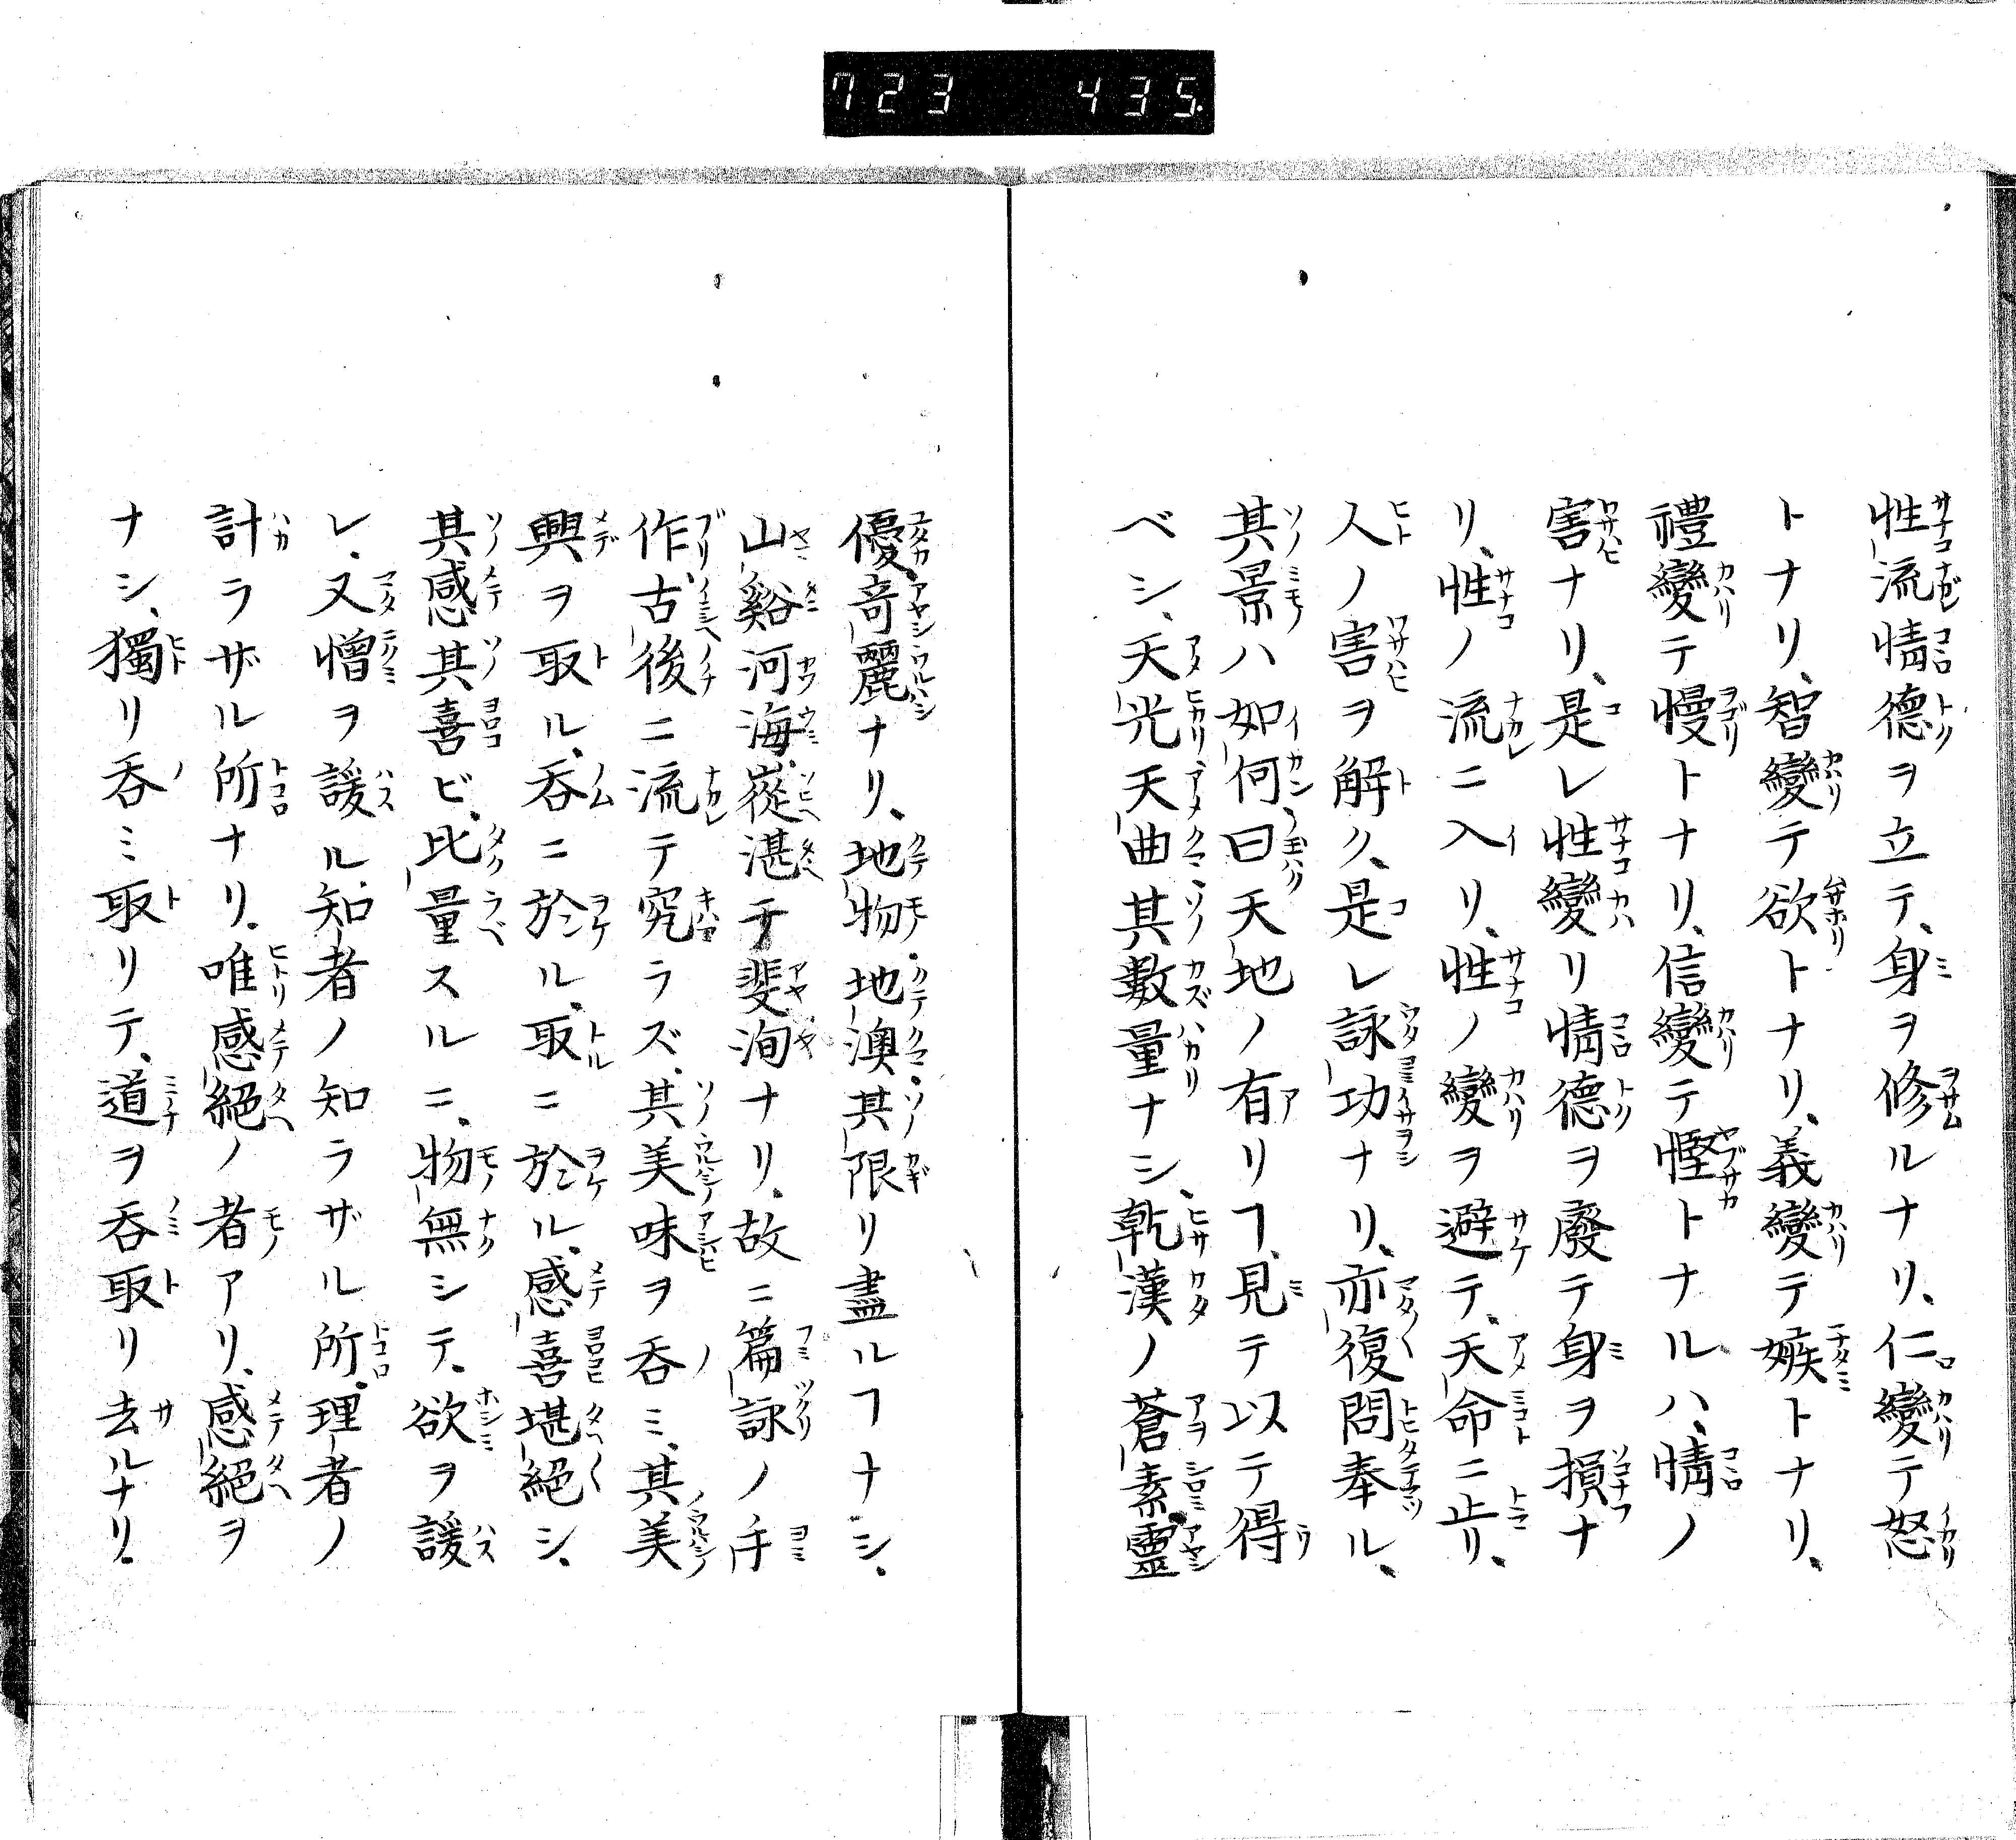 723 435
性流情德ヲ立テ、身ヲ修ルナリ、仁變テ怒
トナリ、智變テ欲トナリ、義變テ嫉トナリ、
禮變テ慢トナリ、信變テ慳トナルハ、情ノ
害ナリ、是レ性變リ情德ヲ廢テ身ヲ損ナ
リ、性ノ流ニ入リ、性ノ變ヲ避テ、天命ニ止リ、
人ノ害ヲ解ク、是レ詠功ナリ、亦復問奉ル、
其景ハ如何、曰天地ノ有リヿ、見テ以テ得
ベシ、天光天曲其數量ナシ、乾漢ノ蒼素靈
優奇麗ナリ、地物地澳其限リ盡ルヿナシ、
山谿河海、嵸湛テ斐洵ナリ、故ニ篇詠ノ手
作古後ニ流テ究ラズ、其美味ヲ呑ミ、其美
興ヲ取ル、呑ニ於ル、取ニ於ル、感喜堪絕シ、
其感其喜ビ、比量スルニ、物無シテ、欲ヲ諼
レ、又憎ヲ諼ル、知者ノ知ラザル所、理者ノ
計ラザル所ナリ、唯感絕ノ者アリ、感絕ヲ
ナシ、獨リ呑ミ取リテ、道ヲ呑取リ去ルナリ、